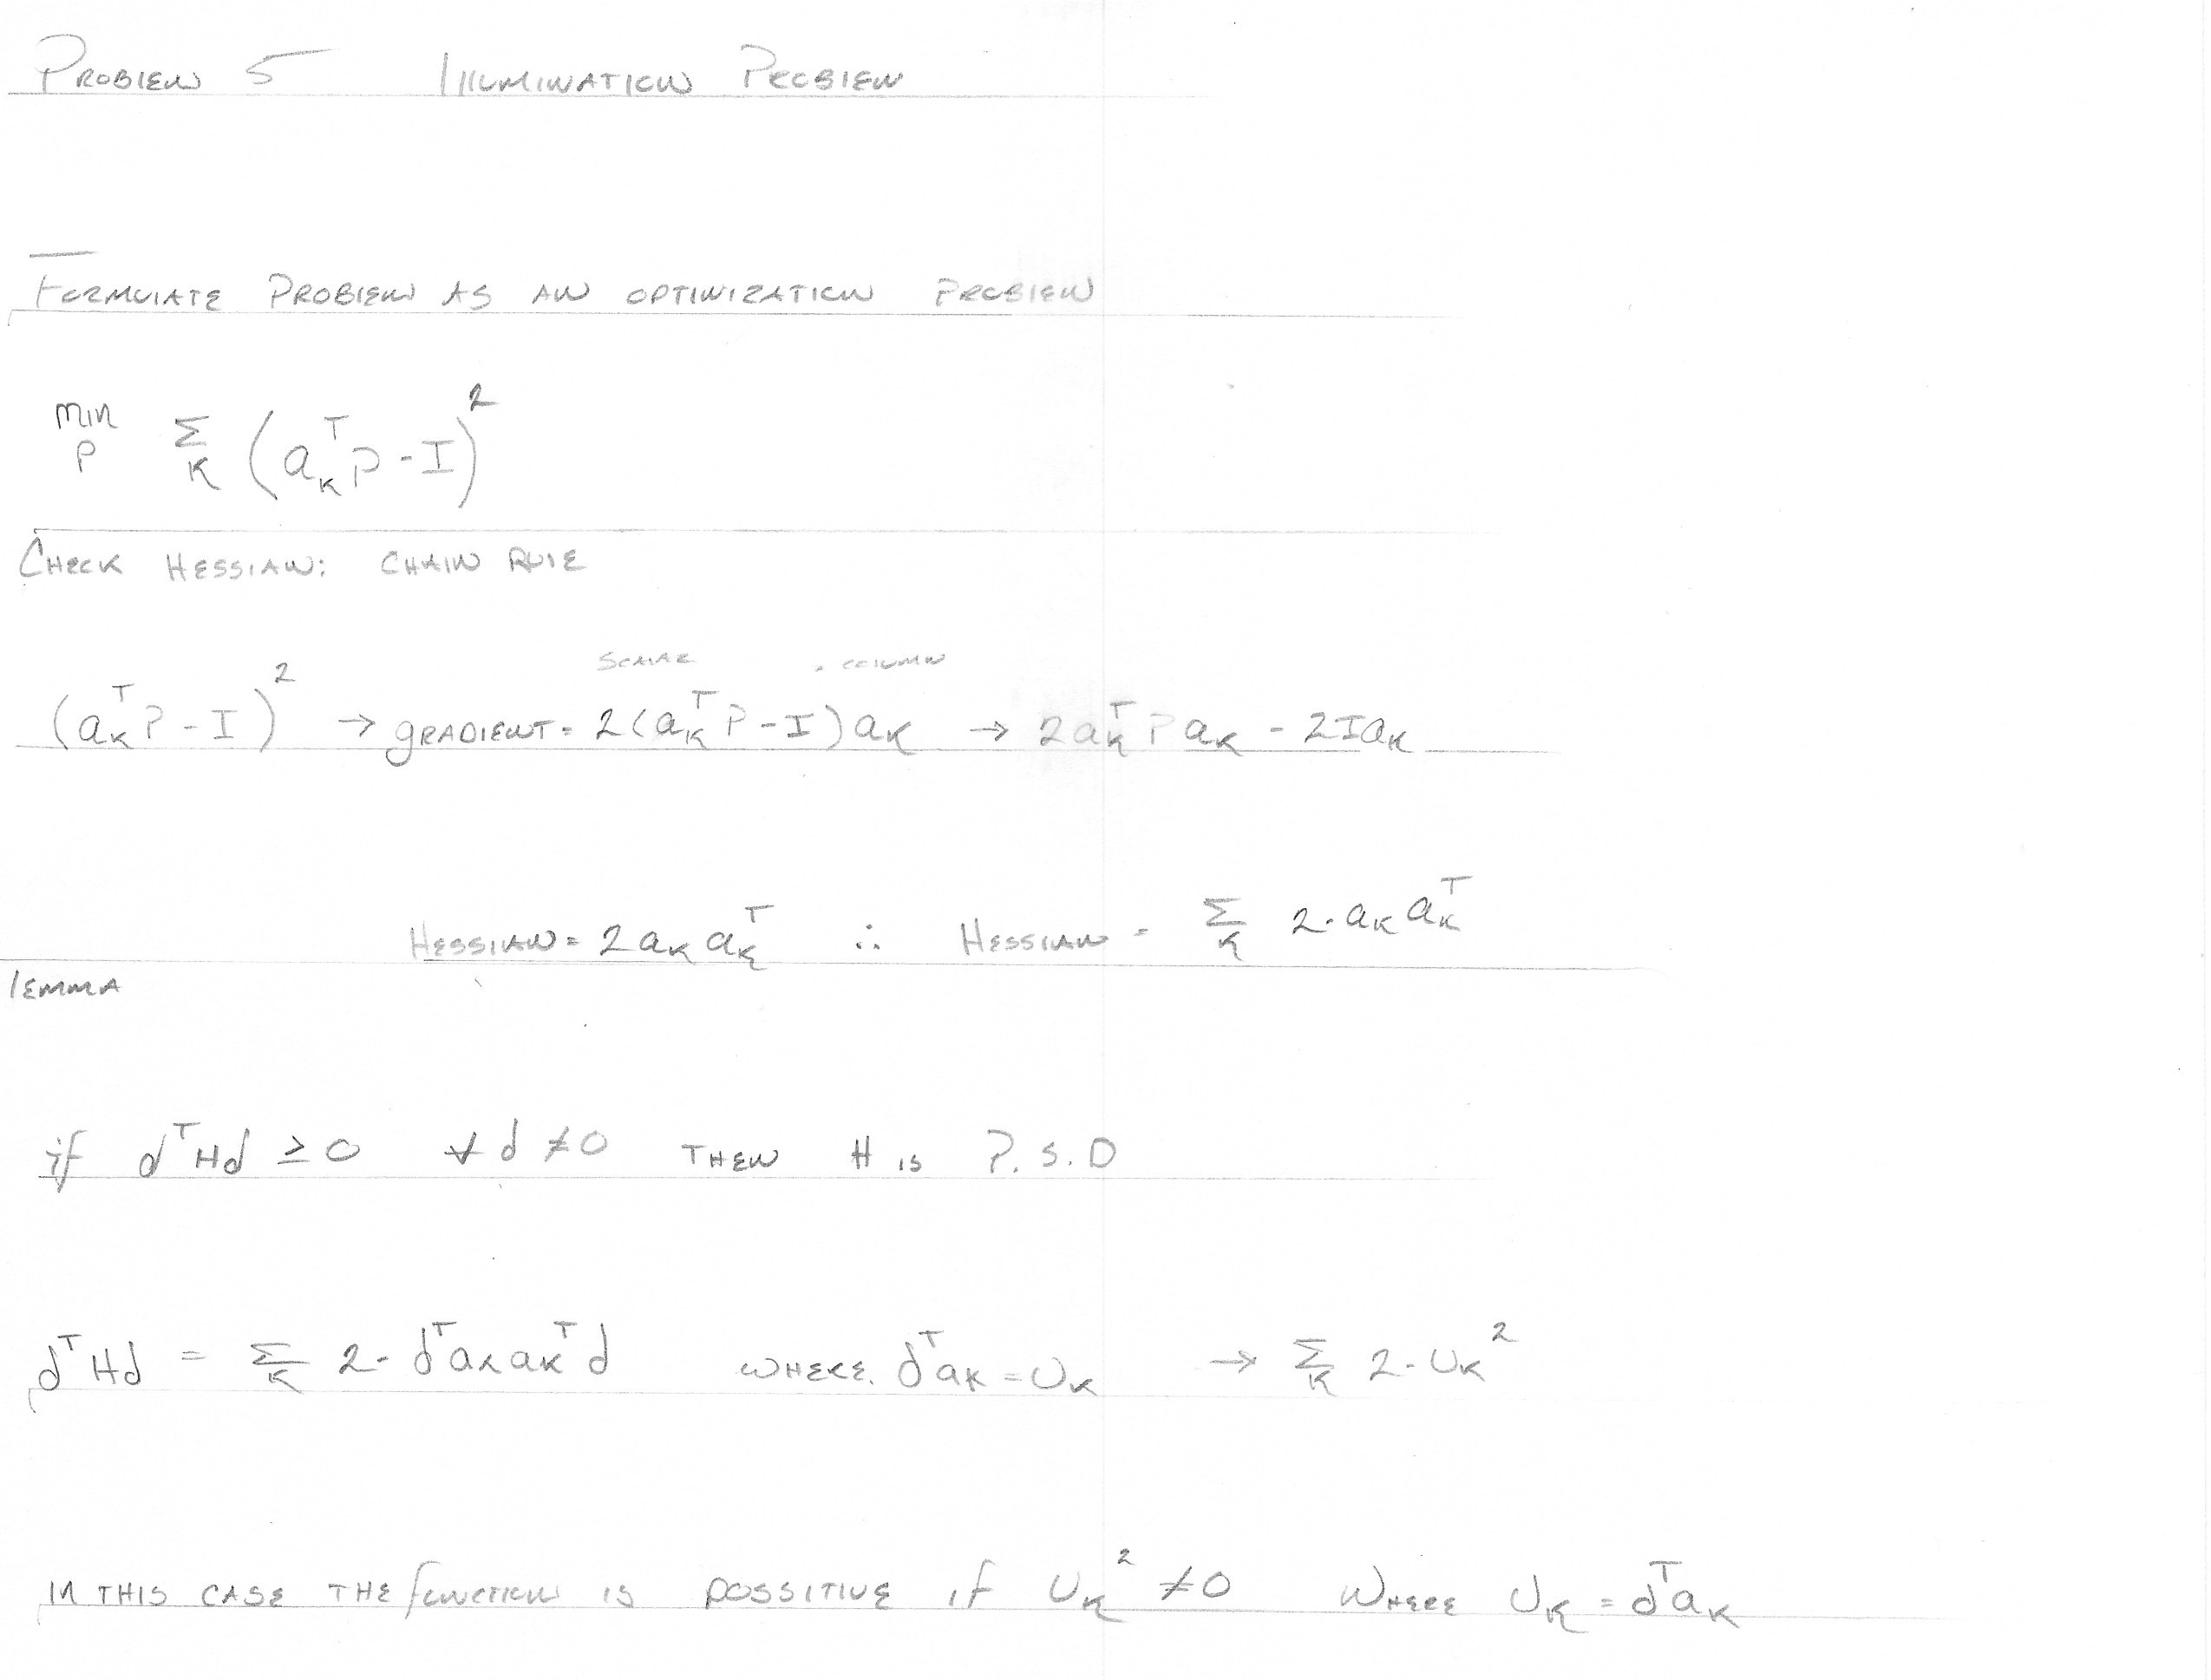 PROBLEM 5 ILLUMINATION PROBLEM
FORMULATE PROBLEM AS AN OPTIMIZATION PROBLEM
min Σ (aₖᵀp - I)²
p k
CHECK HESSIAN: CHAIN RULE
SCALAR · COLUMN
(aₖᵀP - I)² → gRADIENT = 2(aₖᵀP - I)aₖ → 2aₖᵀP aₖ - 2Iaₖ
HESSIAN = 2aₖaₖᵀ ∴ HESSIAN = Σₖ 2·aₖaₖᵀ
LEMMA
if dᵀHd ≥ 0 ∀ d ≠ 0 THEN H IS P.S.D
dᵀHd = Σₖ 2·dᵀaₖaₖᵀd WHERE. dᵀaₖ = Uₖ → Σₖ 2·Uₖ²
IN THIS CASE THE function IS POSSITIVE if Uₖ² ≠ 0 WHERE Uₖ = dᵀaₖ